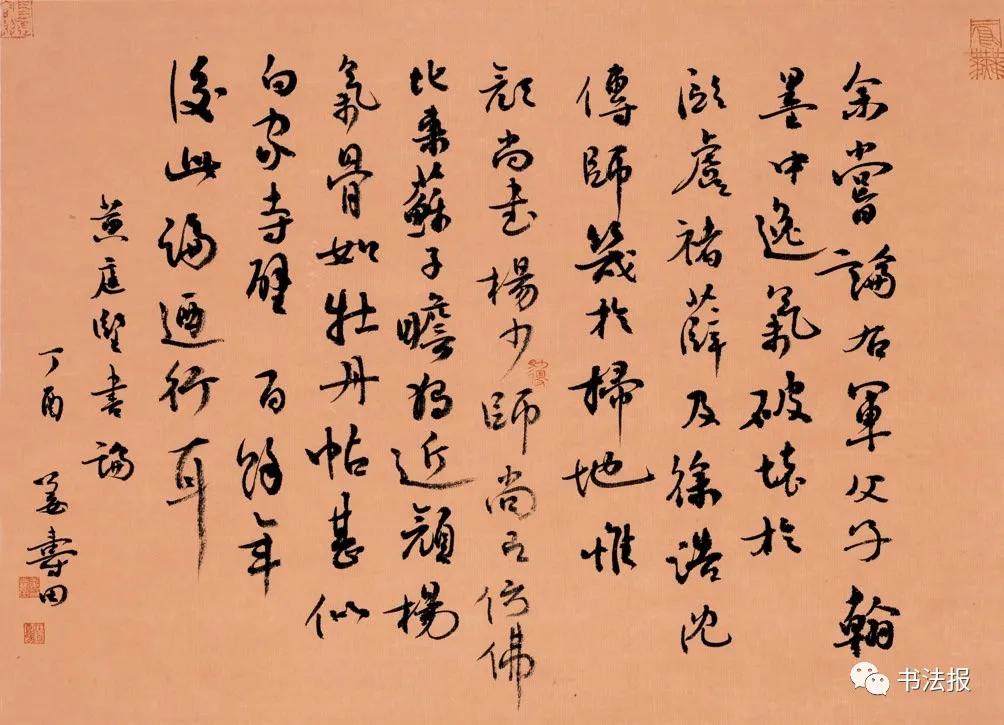 余嘗論右軍父子翰
墨中逸氣破壞於
歐虞褚薛及徐浩沈
傳師幾於掃地惟
顏尚書楊少師尚有仿佛
比來蘇子瞻獨近顏楊
氣骨如牡丹帖甚似
白家寺壁百餘年
後此論迺行耳
黃庭堅書論
丁酉 姜壽田
书法报